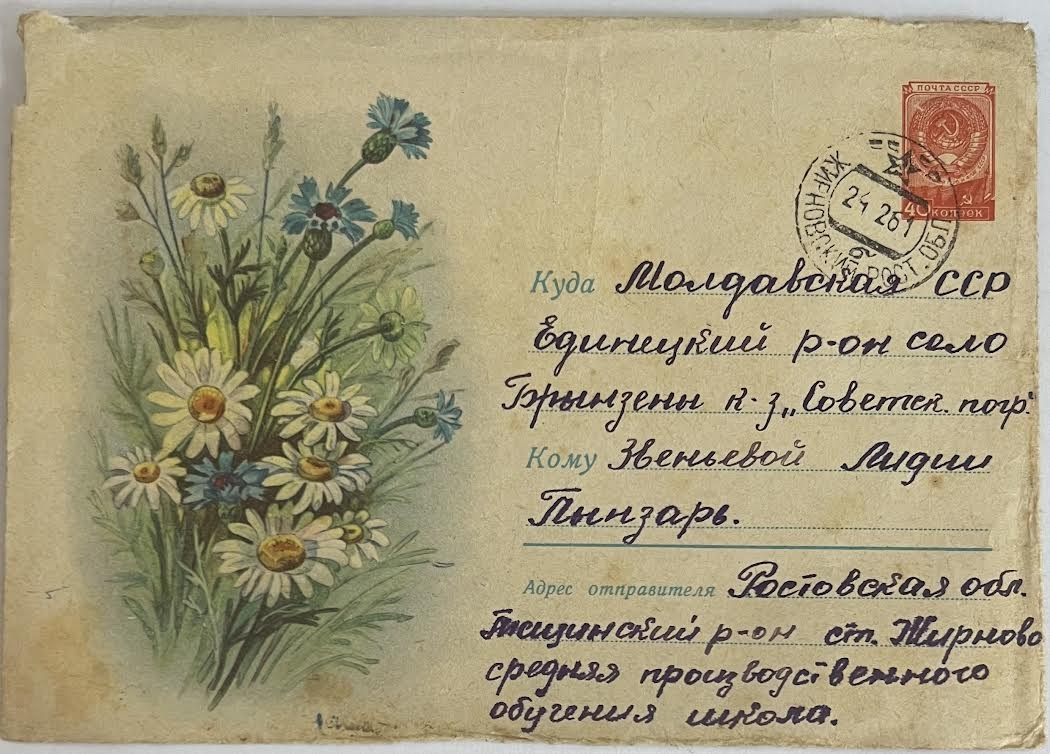 ПОЧТА СССР
40 КОПЕЕК
ЖИРНОВСКИЙ РОСТ. ОБЛ.
24 261
Куда Молдавская ССР
Единецкий р-он село
Брынзены к-з „Советск. погр."
Кому Звеньевой Лидии
Пынзарь.
Адрес отправителя Ростовская обл.
Тацинский р-он ст. Жирново
средняя производственного
обучения школа.